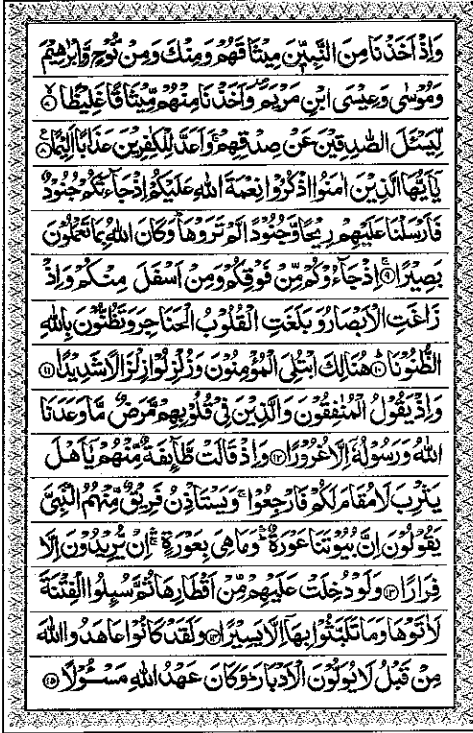 وَاِذْ اَخَذْنَا مِنَ النَّبِيّٖنَ مِيْثَاقَهُمْ وَمِنْكَ وَمِنْ نُّوْحٍ وَّاِبْرٰهِيْمَ
وَمُوْسٰى وَعِيْسَى ابْنِ مَرْيَمَ ۖ وَاَخَذْنَا مِنْهُمْ مِّيْثَاقًا غَلِيْظًا ۙ۷
لِّيَسْـَٔلَ الصّٰدِقِيْنَ عَنْ صِدْقِهِمْ ۚ وَاَعَدَّ لِلْكٰفِرِيْنَ عَذَابًا اَلِيْمًا ۸
يٰۤاَيُّهَا الَّذِيْنَ اٰمَنُوا اذْكُرُوْا نِعْمَةَ اللّٰهِ عَلَيْكُمْ اِذْ جَآءَتْكُمْ جُنُوْدٌ
فَاَرْسَلْنَا عَلَيْهِمْ رِيْحًا وَّجُنُوْدًا لَّمْ تَرَوْهَا ؕ وَكَانَ اللّٰهُ بِمَا تَعْمَلُوْنَ
بَصِيْرًا ۚ۹ اِذْ جَآءُوْكُمْ مِّنْ فَوْقِكُمْ وَمِنْ اَسْفَلَ مِنْكُمْ وَاِذْ
زَاغَتِ الْاَبْصَارُ وَبَلَغَتِ الْقُلُوْبُ الْحَنَاجِرَ وَتَظُنُّوْنَ بِاللّٰهِ
الظُّنُوْنَا ۱۰ هُنَالِكَ ابْتُلِيَ الْمُؤْمِنُوْنَ وَزُلْزِلُوْا زِلْزَالًا شَدِيْدًا ۱۱
وَاِذْ يَقُوْلُ الْمُنٰفِقُوْنَ وَالَّذِيْنَ فِيْ قُلُوْبِهِمْ مَّرَضٌ مَّا وَعَدَنَا
اللّٰهُ وَرَسُوْلُهٗۤ اِلَّا غُرُوْرًا ۱۲ وَاِذْ قَالَتْ طَّآئِفَةٌ مِّنْهُمْ يٰۤاَهْلَ
يَثْرِبَ لَا مُقَامَ لَكُمْ فَارْجِعُوْا ۚ وَيَسْتَاْذِنُ فَرِيْقٌ مِّنْهُمُ النَّبِيَّ
يَقُوْلُوْنَ اِنَّ بُيُوْتَنَا عَوْرَةٌ ۛ وَمَا هِيَ بِعَوْرَةٍ ۛ اِنْ يُّرِيْدُوْنَ اِلَّا
فِرَارًا ۱۳ وَلَوْ دُخِلَتْ عَلَيْهِمْ مِّنْ اَقْطَارِهَا ثُمَّ سُئِلُوا الْفِتْنَةَ
لَاٰتَوْهَا وَمَا تَلَبَّثُوْا بِهَاۤ اِلَّا يَسِيْرًا ۱۴ وَلَقَدْ كَانُوْا عَاهَدُوا اللّٰهَ
مِنْ قَبْلُ لَا يُوَلُّوْنَ الْاَدْبَارَ ؕ وَكَانَ عَهْدُ اللّٰهِ مَسْـُٔوْلًا ۱۵